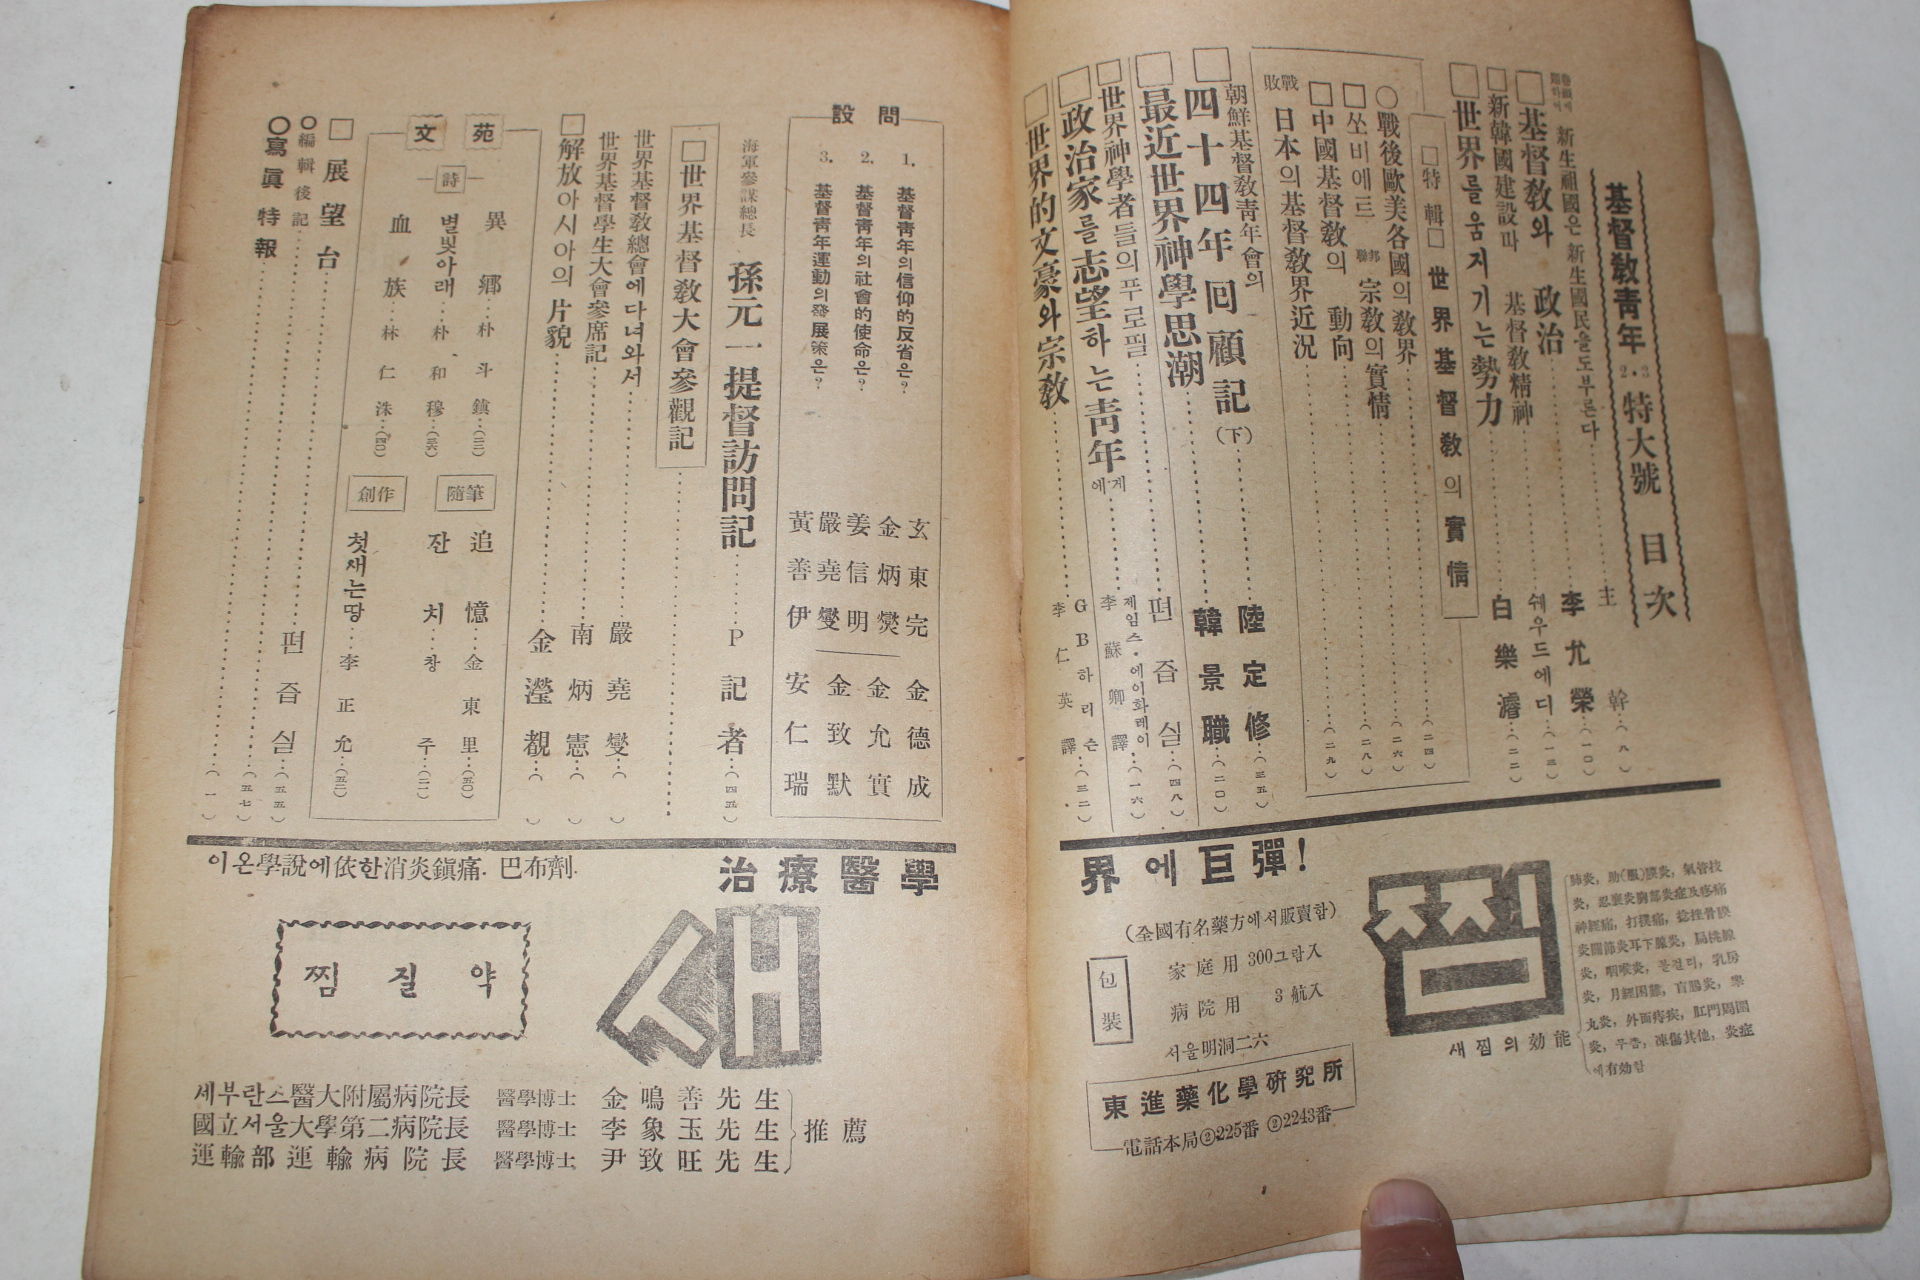 基督敎靑年 2·3 特大號 目次
新生祖國은 新生國民을도부른다 主幹 (八)
□基督敎와 政治 李允榮 (一〇)
□新韓國建設과 基督敎精神 쉐우드에디 (一三)
□世界를움지기는勢力 白樂濬 (二二)
□特輯□ 世界基督敎의實情
○戰後歐美各國의敎界 (二四)
□쏘비에트聯邦宗敎의實情 (二六)
□中國基督敎의 動向 (二八)
戰敗日本의基督敎界近況 (二九)
朝鮮基督敎靑年會의
□四十四年回顧記(下) 陸定修 (三五)
□最近世界神學思潮 韓景職 (二〇)
□世界神學者들의푸로필 편즙실 (四八)
□政治家를志望하는靑年에게 제임스·에이화레이 李蘇卿 譯 (一六)
□世界的文豪와宗敎 GB하리슨 李仁英 譯 (三二)
設問
1. 基督靑年의信仰的反省은?
2. 基督靑年의社會的使命은?
3. 基督靑年運動의發展策은?
玄東完 金德成
金炳爕 金允實
姜信明 金致默
嚴堯燮
黃善伊 安仁瑞
海軍參謀總長 孫元一提督訪問記 P記者 (四五)
□世界基督敎大會參觀記
世界基督敎總會에다녀와서 嚴堯燮 ( )
世界基督學生大會參席記 南炳憲 ( )
□解放아시아의片貌 金瀅覩 ( )
文苑
詩
異鄕 朴斗鎭
별빛아래 朴和穆
血族 林仁洙 (四〇)
隨筆
追憶 金東里 (五〇)
잔치 창주 (二一)
創作
첫새는땅 李正允 (五三)
□展望台 편즙실 (五五)
○編輯後記 (五七)
○寫眞特報 (一)
이온學說에依한消炎鎭痛. 巴布劑.
治療醫學
界에巨彈!
새
찜
찜질약
(全國有名藥方에서販賣함)
包裝
家庭用 300그람入
病院用 3
서울明洞二六
東進藥化學硏究所
電話本局②225番 ②2243番
새찜의効能
세부란스醫大附屬病院長 醫學博士 金鳴善先生
國立서울大學第二病院長 醫學博士 李象玉先生
運輸部運輸病院長 醫學博士 尹致旺先生
推薦